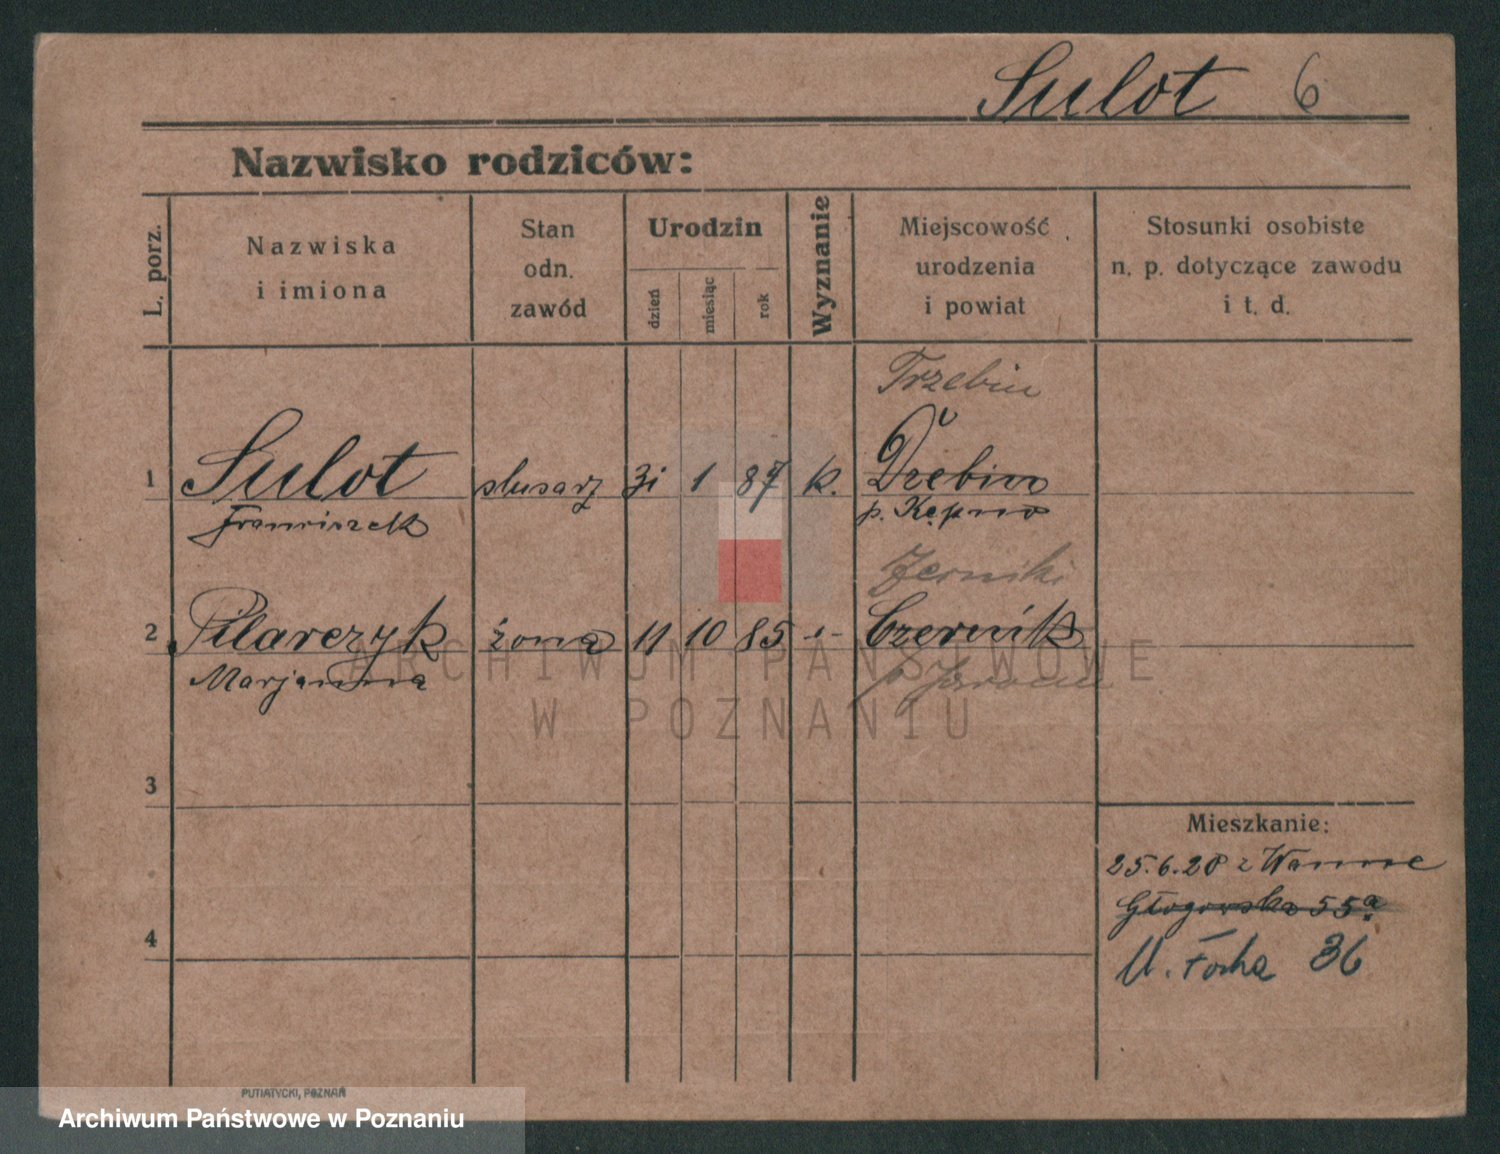 Sulot 6
Nazwisko rodziców:
L. porz.
Nazwiska
i imiona
Stan
odn.
zawód
Urodzin
dzień
miesiąc
rok
Wyznanie
Miejscowość
urodzenia
i powiat
Stosunki osobiste
n. p. dotyczące zawodu
i t. d.
Trzebin
1 Sulot slusarz 31 1 87 k.
Franciszek p. Kępno
Zerniki
2 Pilarczyk żona 11 10 85 Czernik
Marjanna p Jarocin
ARCHIWUM PAŃSTWOWE
W POZNANIU
3
Mieszkanie:
25.6.28 z Wanne
Głogowska 55a
4
M. Focha 36
PUTIATYCKI, POZNAŃ
Archiwum Państwowe w Poznaniu